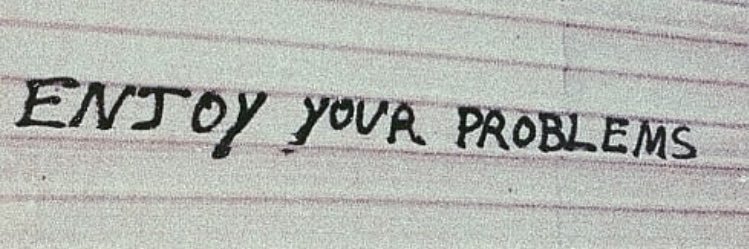 ENJOY YOUR PROBLEMS